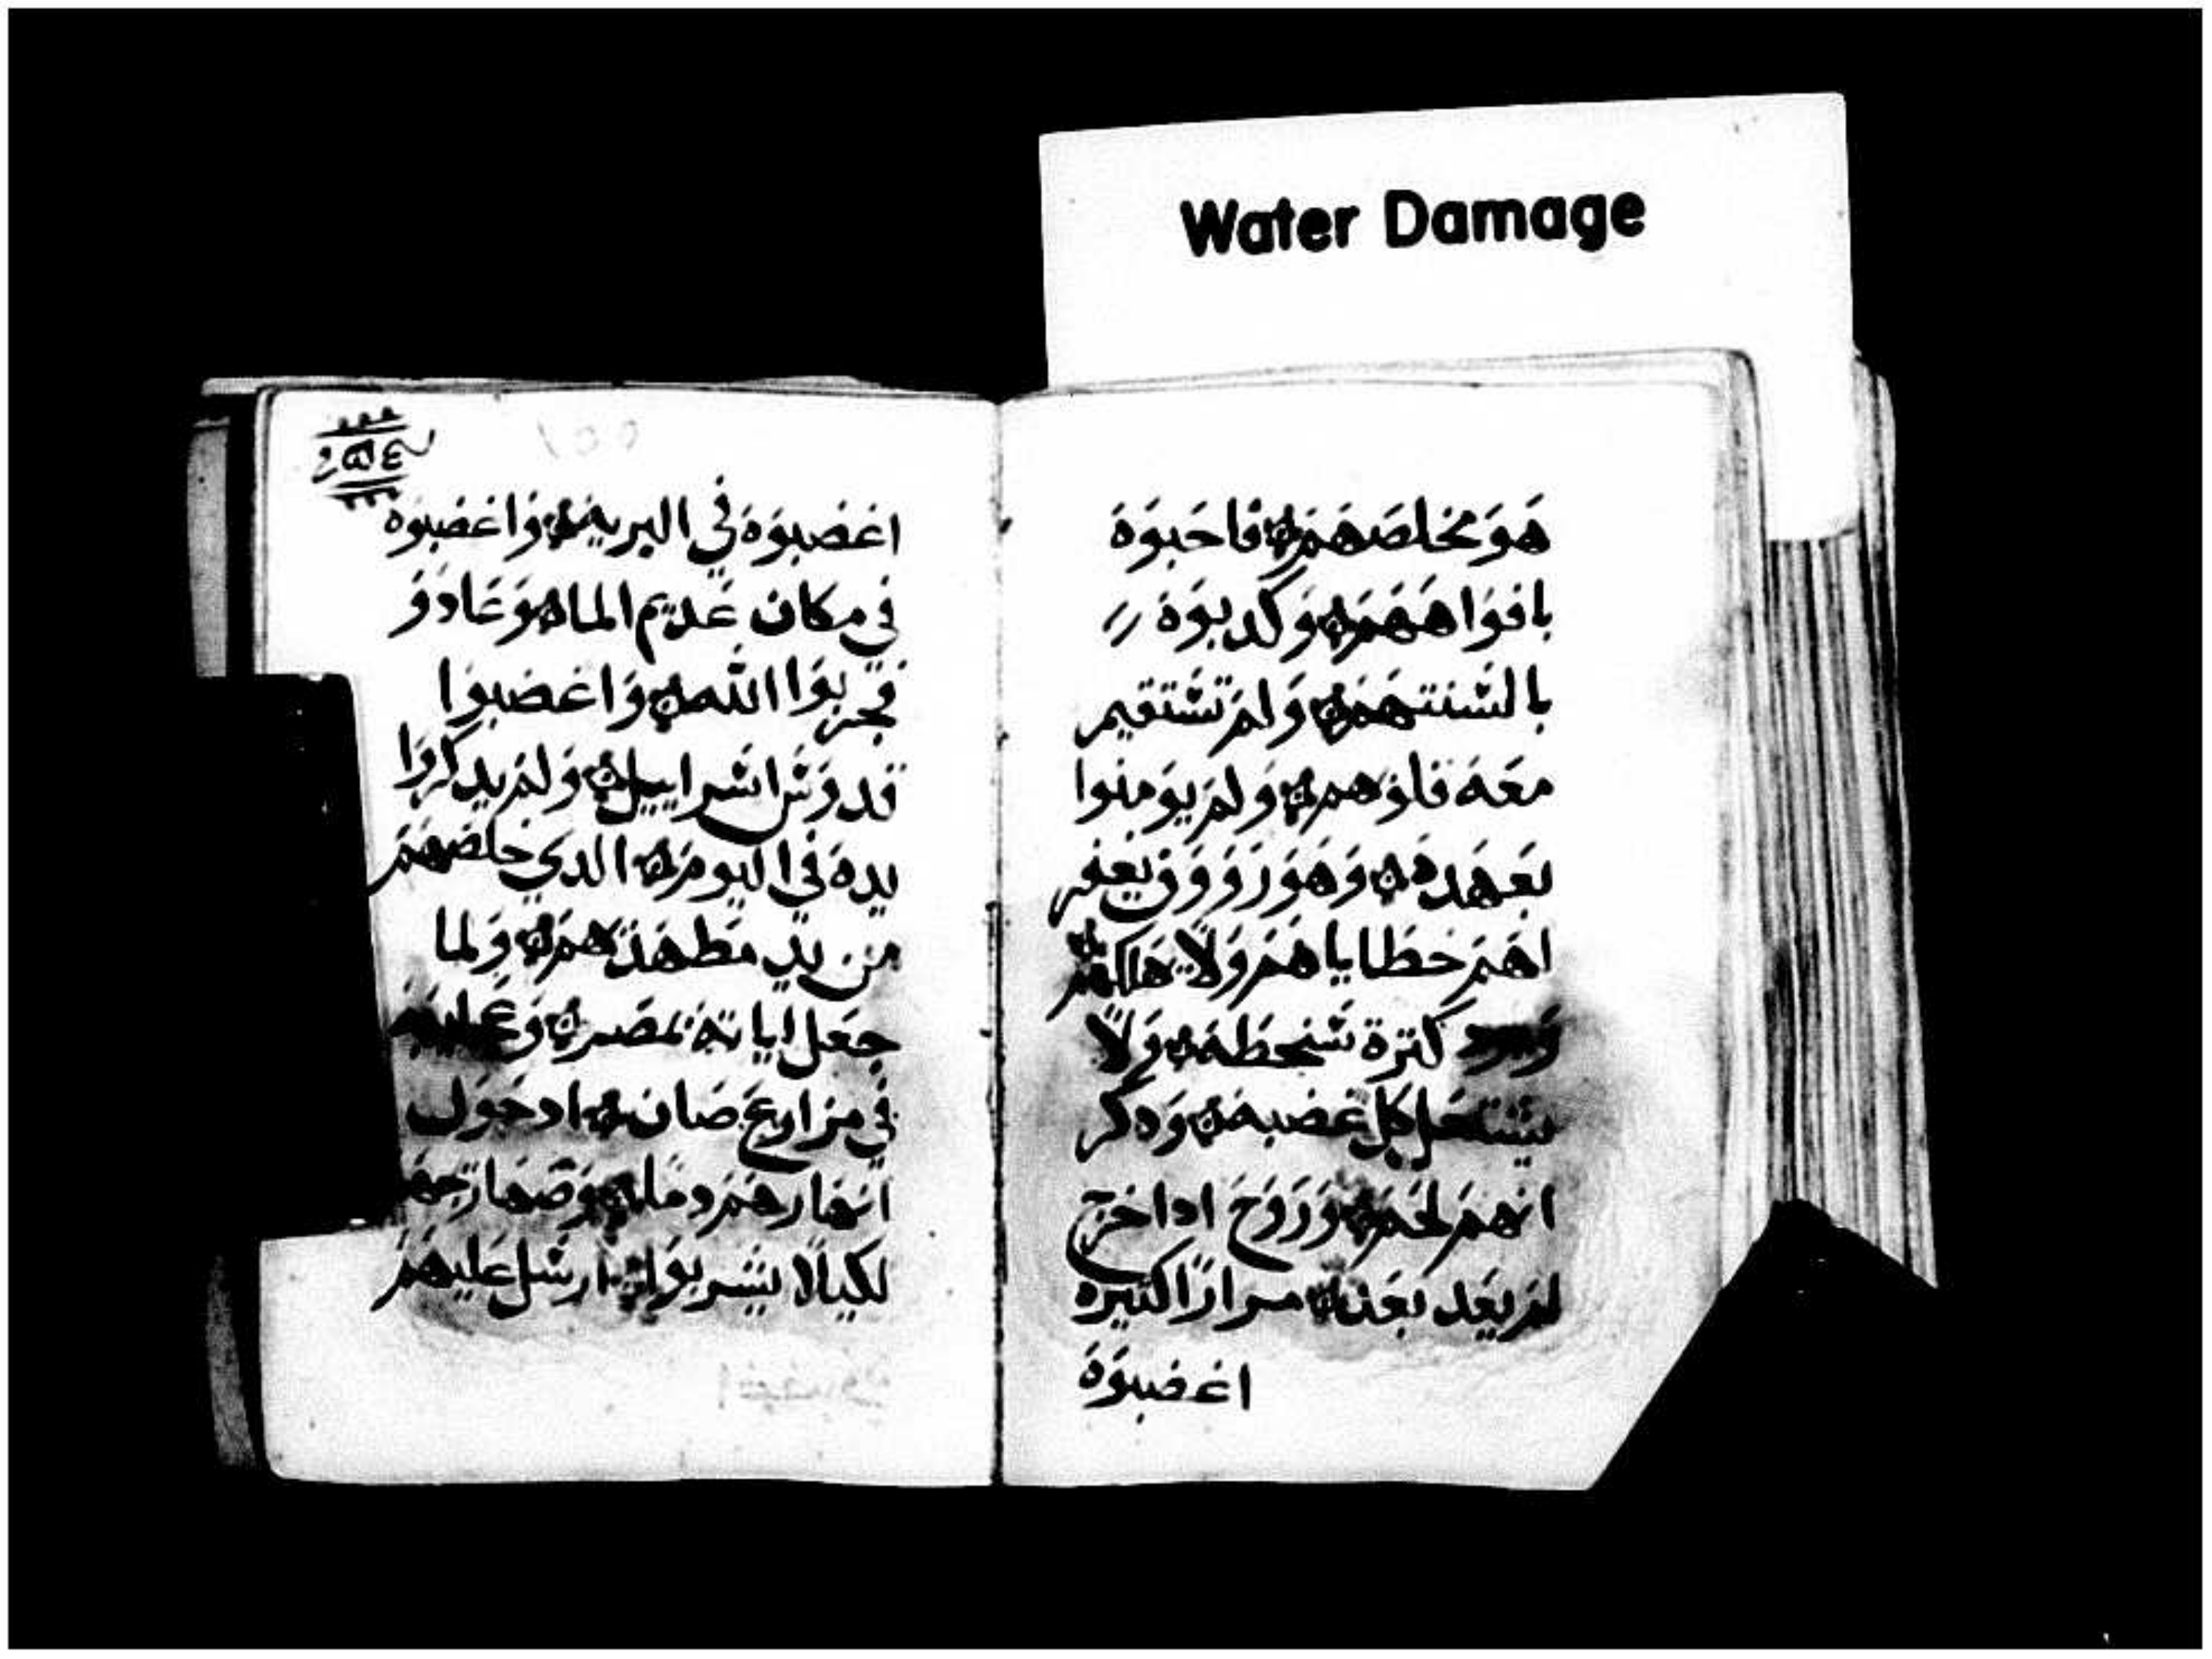 Water Damage
هو مخلصهم فاحبوه
بافواههم وكدبوه
بالشنتهم ولم تشتقيم
معه قلوبهم ولم يومنوا
بعهده وهو رووف يغفر
لهم خطاياهم ولا يهلكهم
كترة شخطه ولا
يشتعل كل غضبه ودكر
انهم لحم وروح ادا خرج
لم يعد بعد مرارا كتيره
اغضبوه
اغضبوه في البريه واغضبوه
في مكان عديم الما وعادو
فجربوا الله واغضبوا
قدوش اشراييل ولم يدكروا
يده في اليوم الدي خلصهم
من يد مطهدهم ولما
جعل اياته بمصر
في مزارع صان ادحول
انهارهم دما
لكيلا يشربوا ارشل عليهم